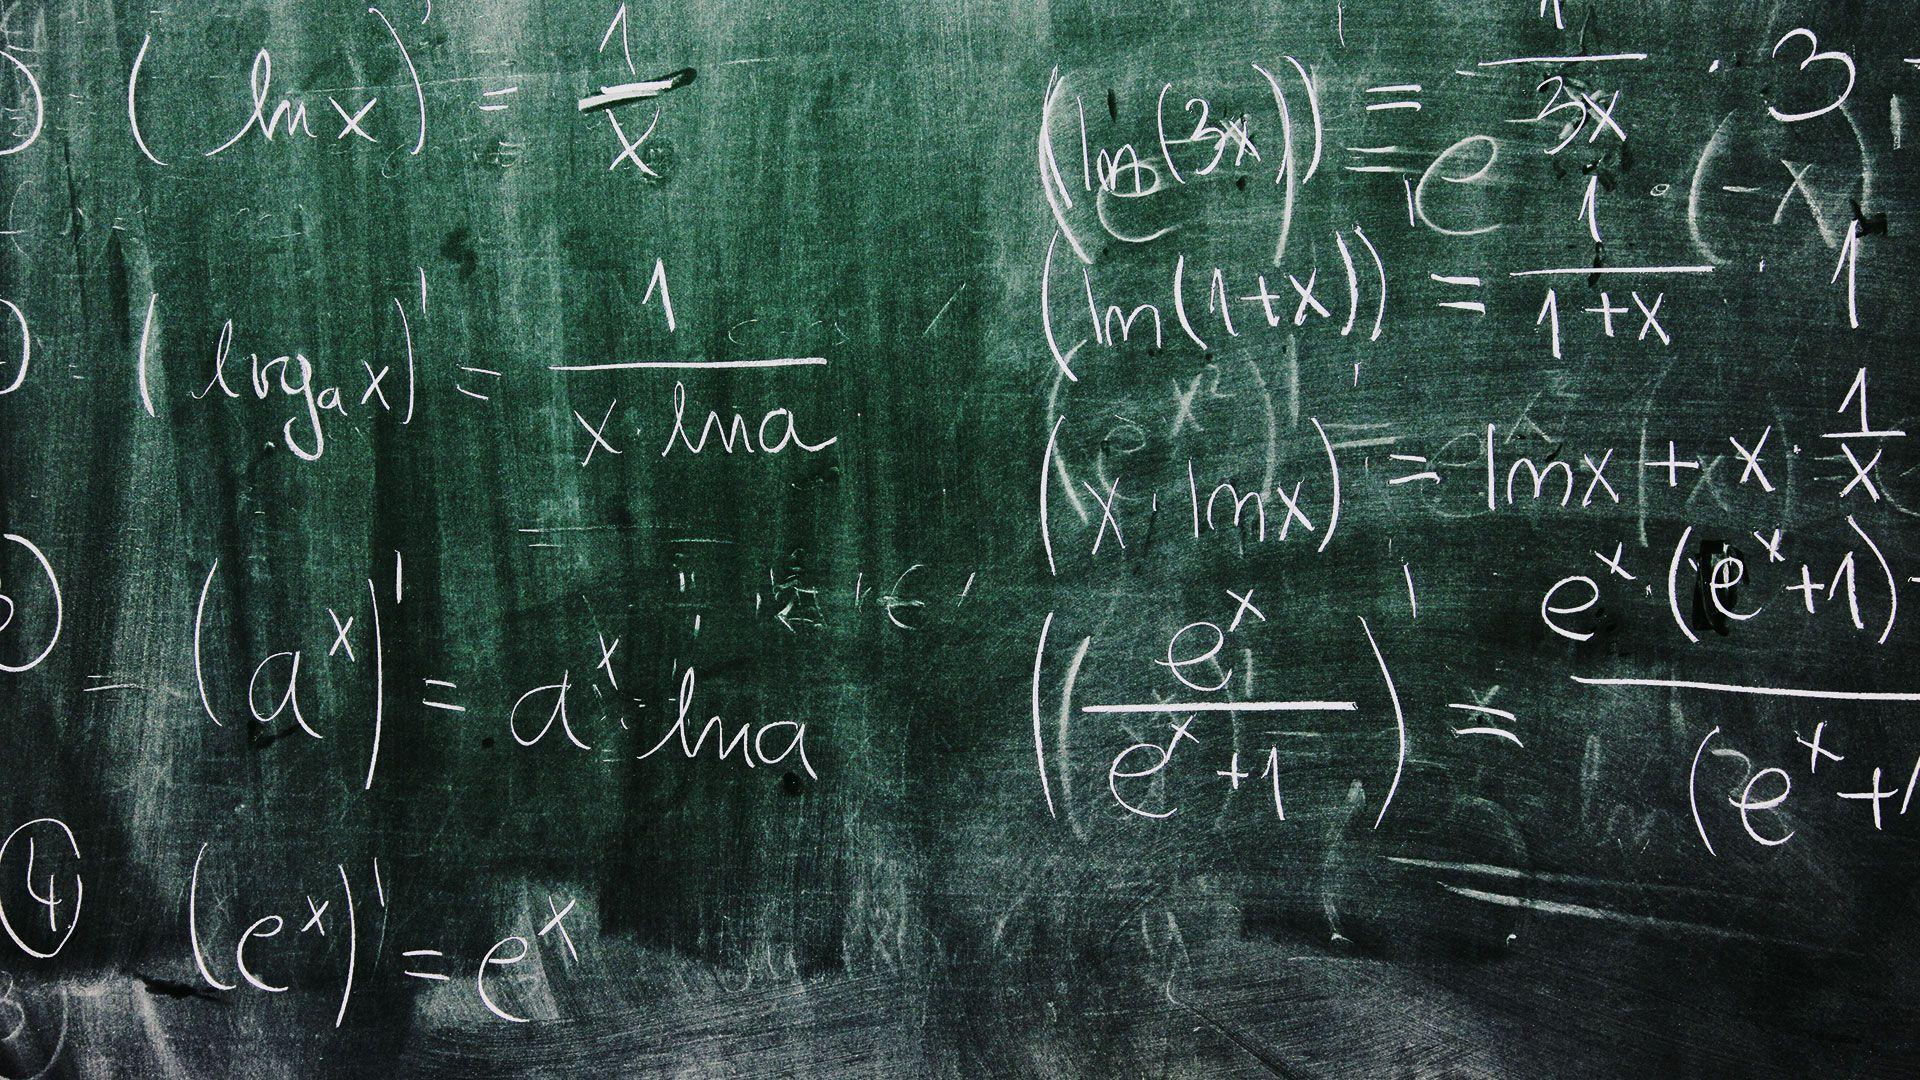 (ln x)' = 1/x
(log_a x)' = 1/(x · ln a)
(a^x)' = a^x · ln a
④ (e^x)' = e^x
(ln(3x))' = 1/3x · 3
(ln(1+x))' = 1/(1+x) · 1
(x · ln x)' = ln x + x · 1/x
(e^x/(e^x+1))' = e^x · (e^x+1) - / (e^x+1